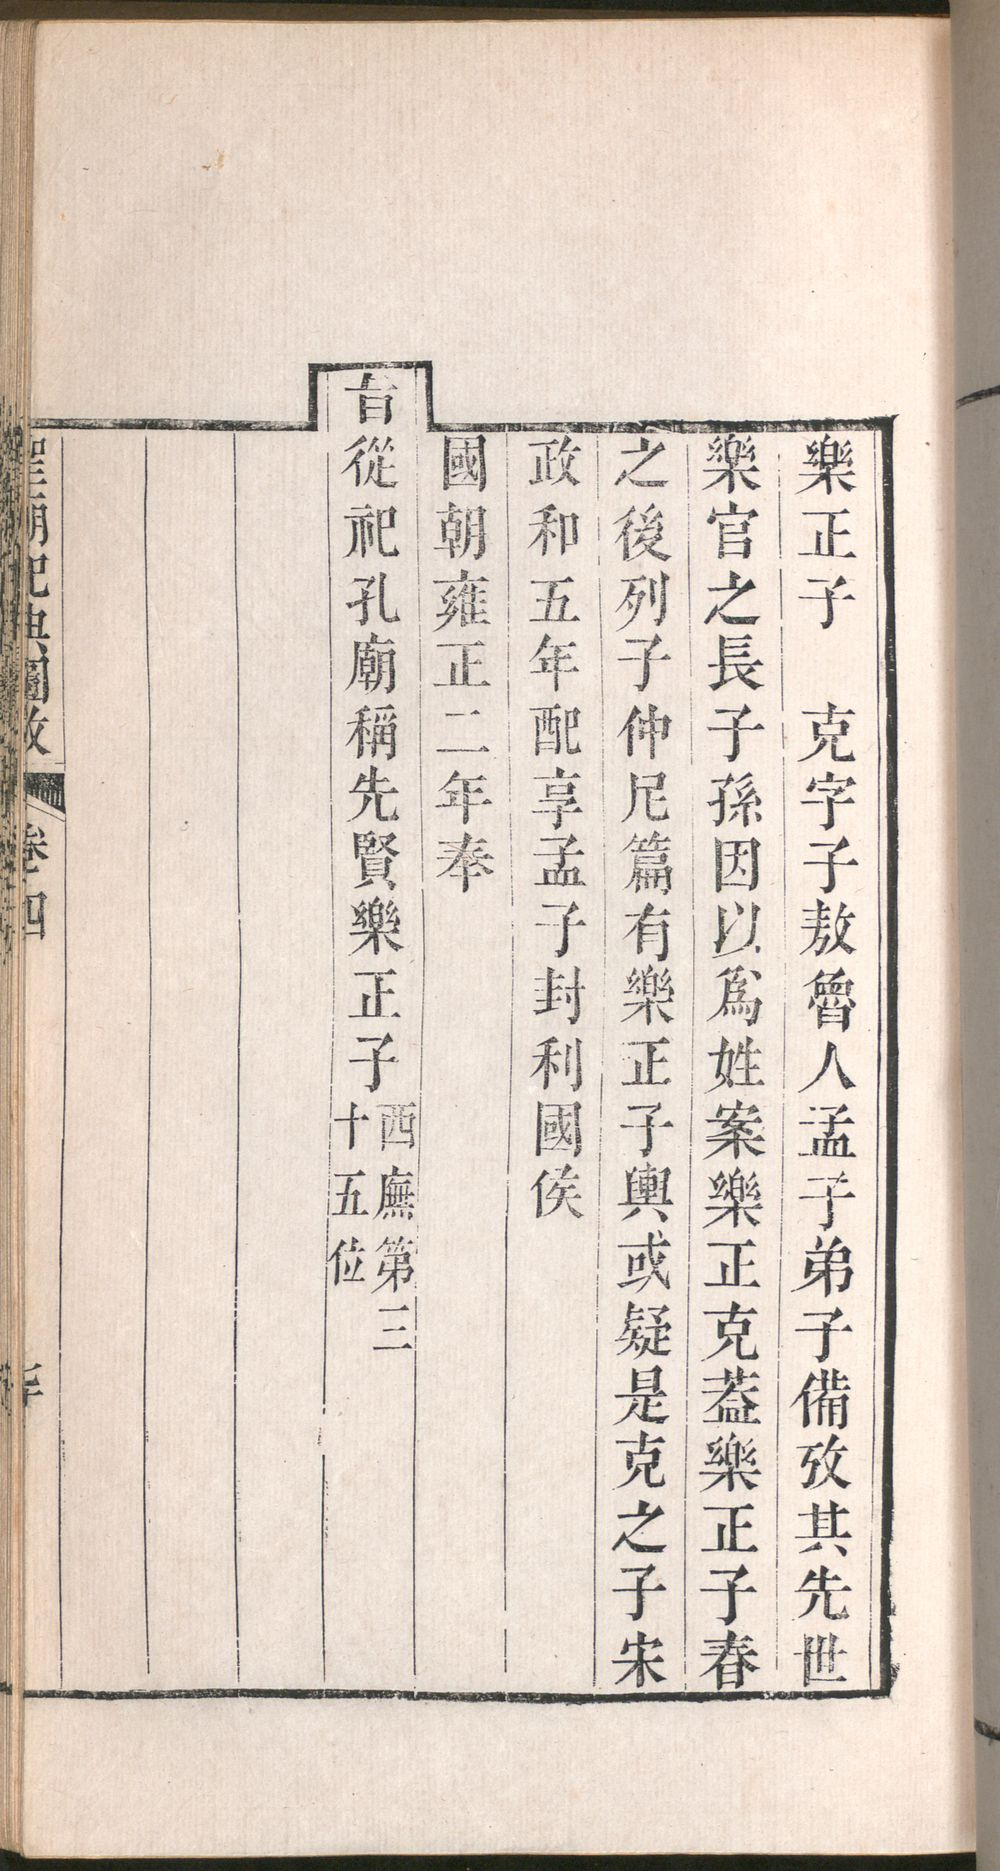 樂正子　克字子敖魯人孟子弟子備攷其先世
樂官之長子孫因以爲姓案樂正克葢樂正子春
之後列子仲尼篇有樂正子輿或疑是克之子宋
政和五年配享孟子封利國侯
國朝雍正二年奉
旨從祀孔廟稱先賢樂正子西廡第三
十五位
聖廟祀典圖攷
卷四